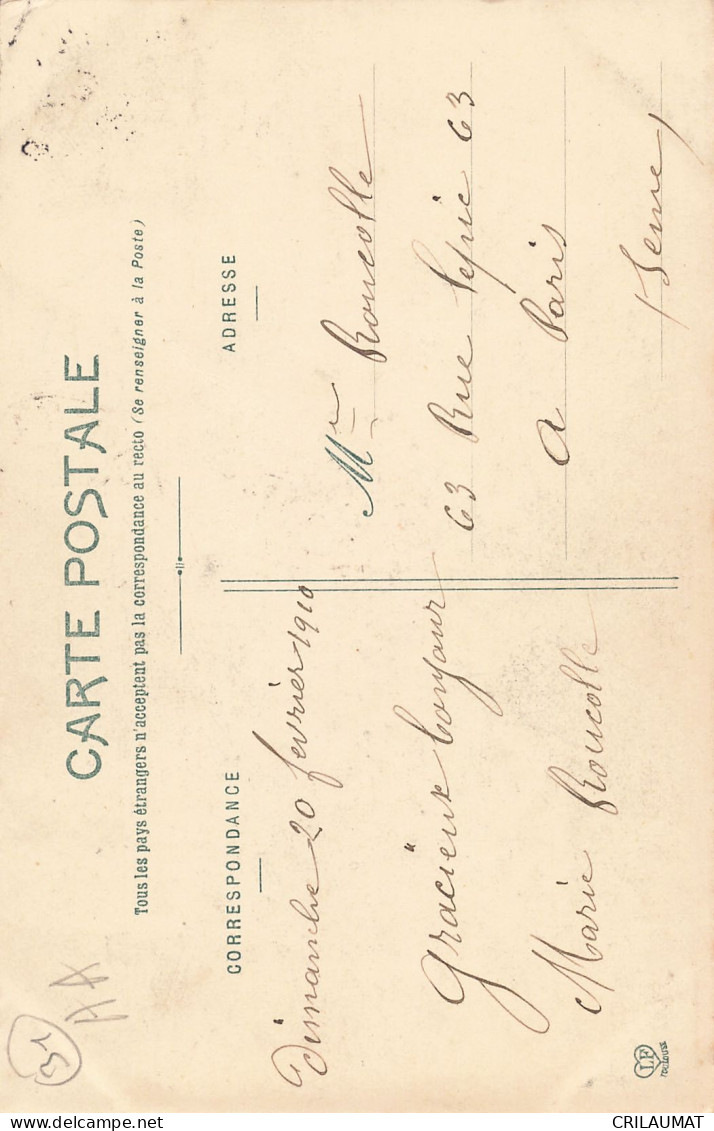 CARTE POSTALE
Tous les pays étrangers n'acceptent pas la correspondance au recto (Se renseigner à la Poste)
CORRESPONDANCE
Dimanche 20 fevrier 1910
Gracieux
Marie Roucolle
ADRESSE
Roucolle
63 Rue Lepic 63
a Paris
(Seine)
LF
TOULOUSE
CRILAUMAT